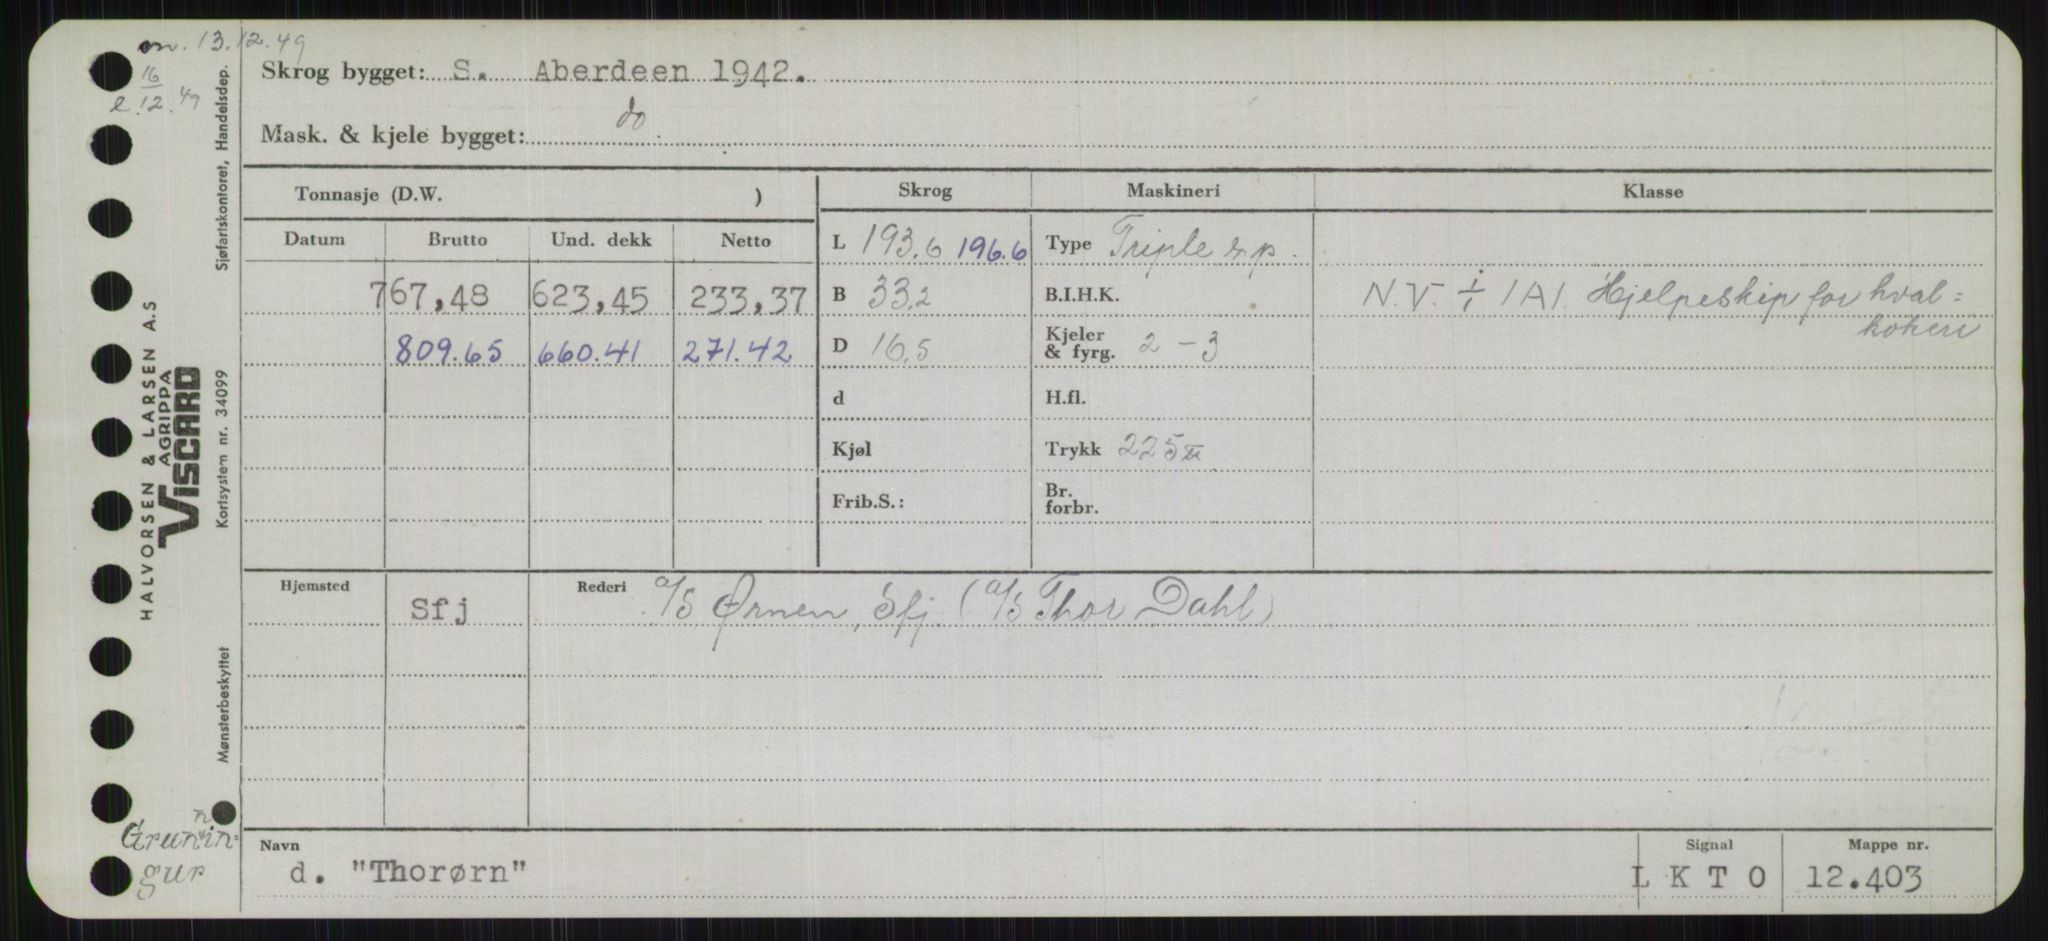 m. 13.12.49
16
e. 12. 49
Skrog bygget: S. Aberdeen 1942.
Mask. & kjele bygget: do.
Tonnasje (D.W. )
Skrog Maskineri Klasse
Datum Brutto Und. dekk Netto
L 193.6 196.6 Type Triple exp.
767,48 623,45 233,37 B 33.2 B.I.H.K. N.V. ⊹ 1A1. Hjelpeskip for hval=
kokeri
809.65 660.41 271.42 D 16.5 Kjeler
& fyrg. 2 - 3
d H.fl.
Kjøl Trykk 225
Frib.S.: Br.
forbr.
Hjemsted Rederi
Sfj A/S Ørnen, Sfj. (A/S Thor Dahl)
Navn Signal Mappe nr.
d. "Thorørn" L K T O 12.403
HALVORSEN & LARSEN A.S
AGRIPPA
VISCARD
Sjøfartskontoret, Handelsdep.
Kortsystem nr. 34099
Mønsterbeskyttet
gur